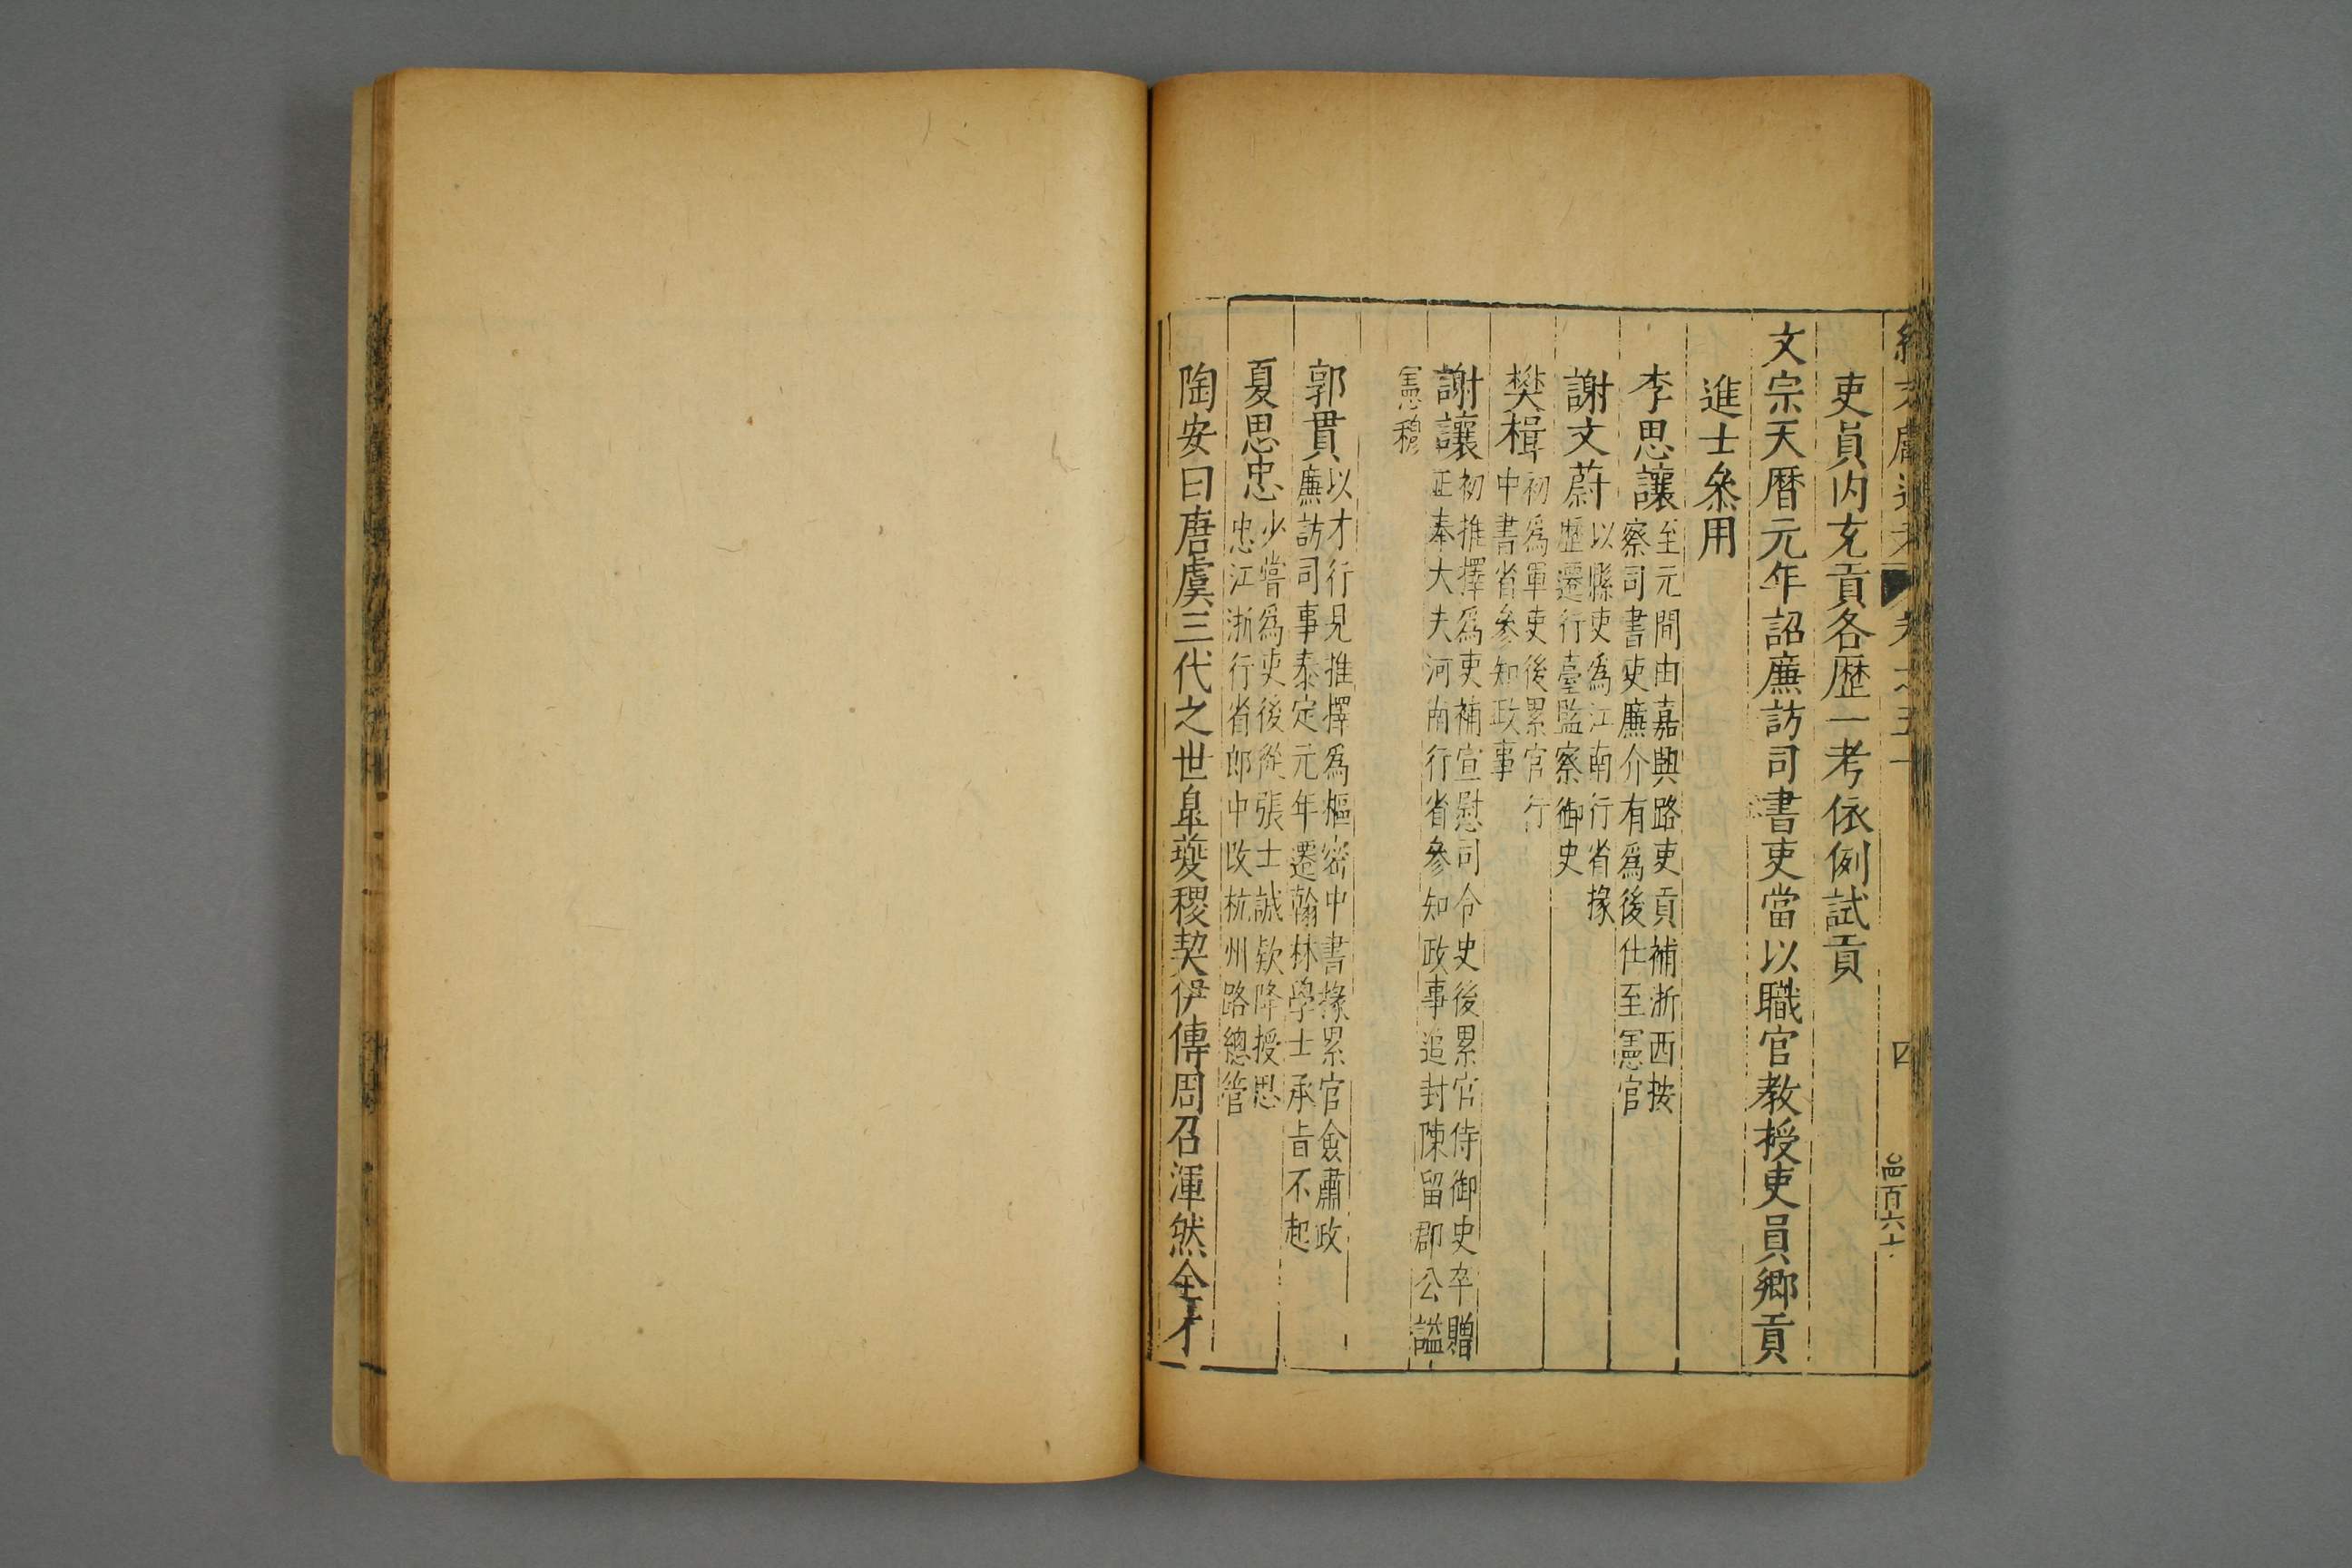 續文獻通考 卷之五十 四 四百六十
吏員內充貢各歷一考依例試貢
文宗天曆元年詔廉訪司書吏當以職官教授吏員鄉貢
進士叅用
李思讓 至元間由嘉興路吏貢補浙西按
察司書吏廉介有爲後仕至憲官
謝文蔚 以縣吏爲江南行省掾
歷遷行臺監察御史
樊楫 初爲軍吏後累官行
中書省參知政事
謝讓 初推擇爲吏補宣慰司令史後累官侍御史卒贈
正奉大夫河南行省參知政事追封陳留郡公謚
憲穆
郭貫 以才行見推擇爲樞密中書掾累官僉肅政
廉訪司事泰定元年遷翰林學士承旨不起
夏思忠 少嘗爲吏後從張士誠欵降授思
忠江浙行省郎中改杭州路總管
陶安曰唐虞三代之世皐夔稷契伊傅周召渾然全才